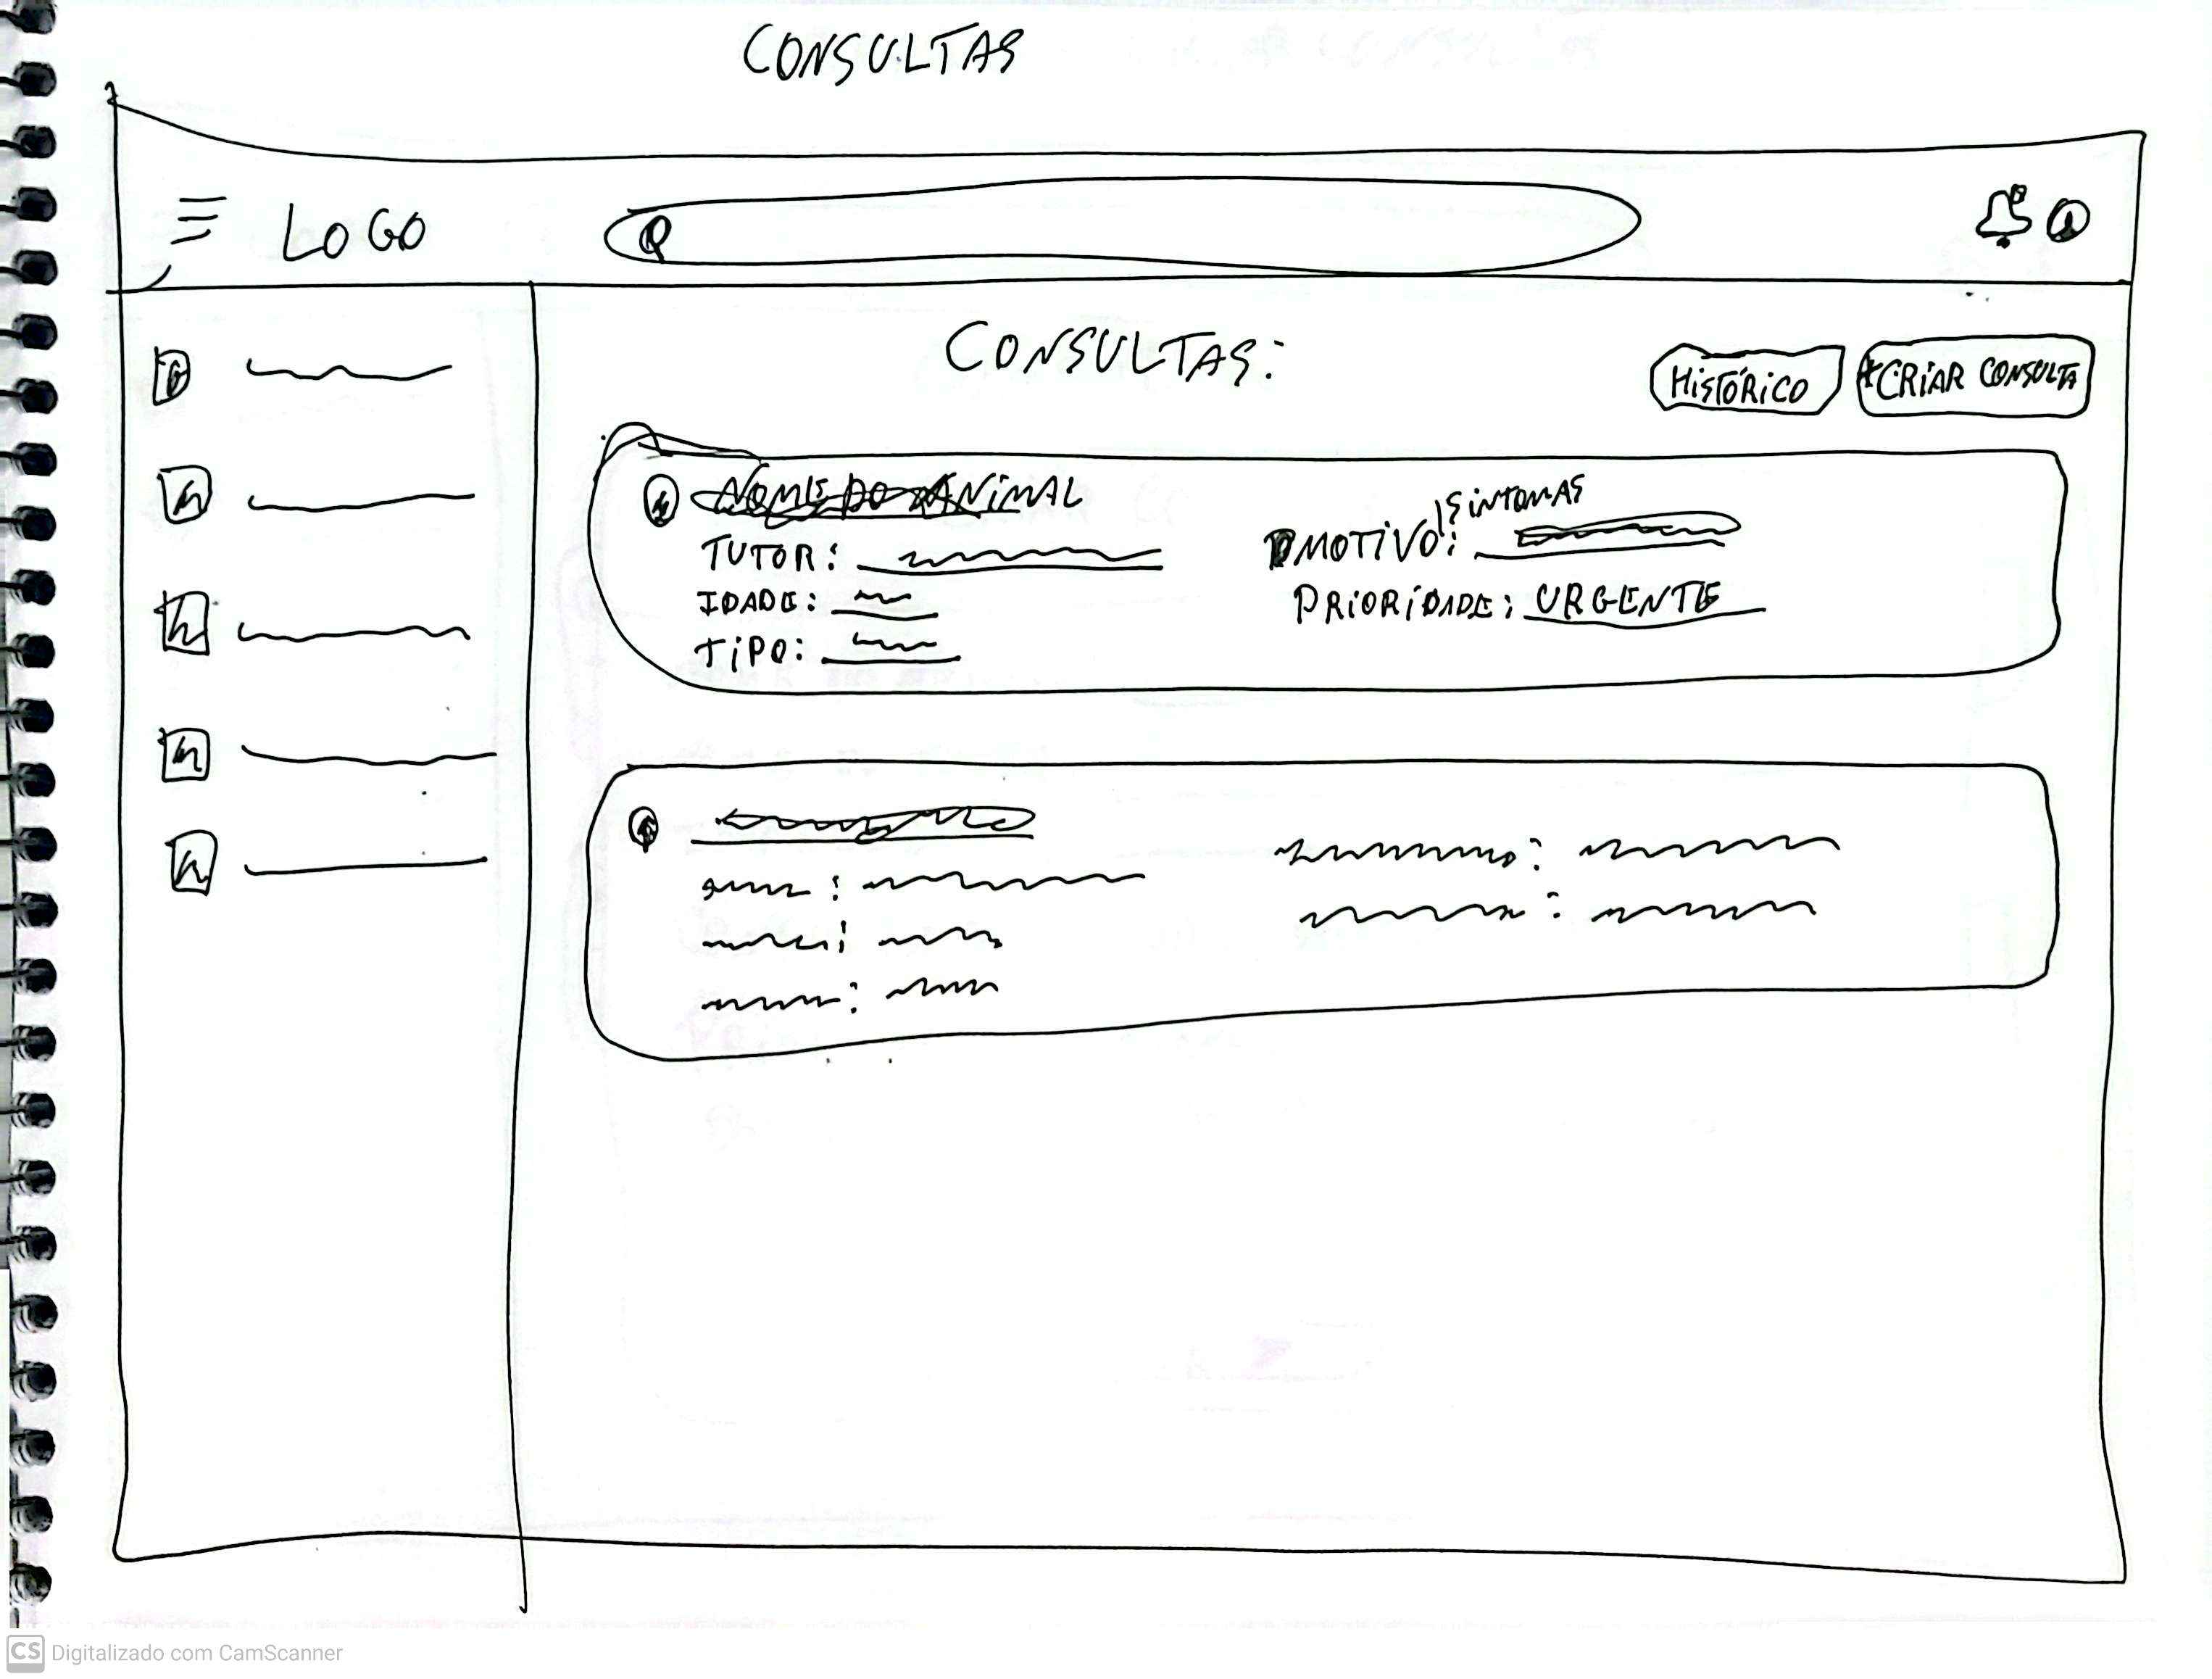 CONSULTAS
LOGO
CONSULTAS:
HISTÓRICO
+CRIAR CONSULTA
NOME DO ANIMAL
TUTOR:
IDADE:
TIPO:
MOTIVO|SINTOMAS:
PRIORIDADE: URGENTE
CS Digitalizado com CamScanner